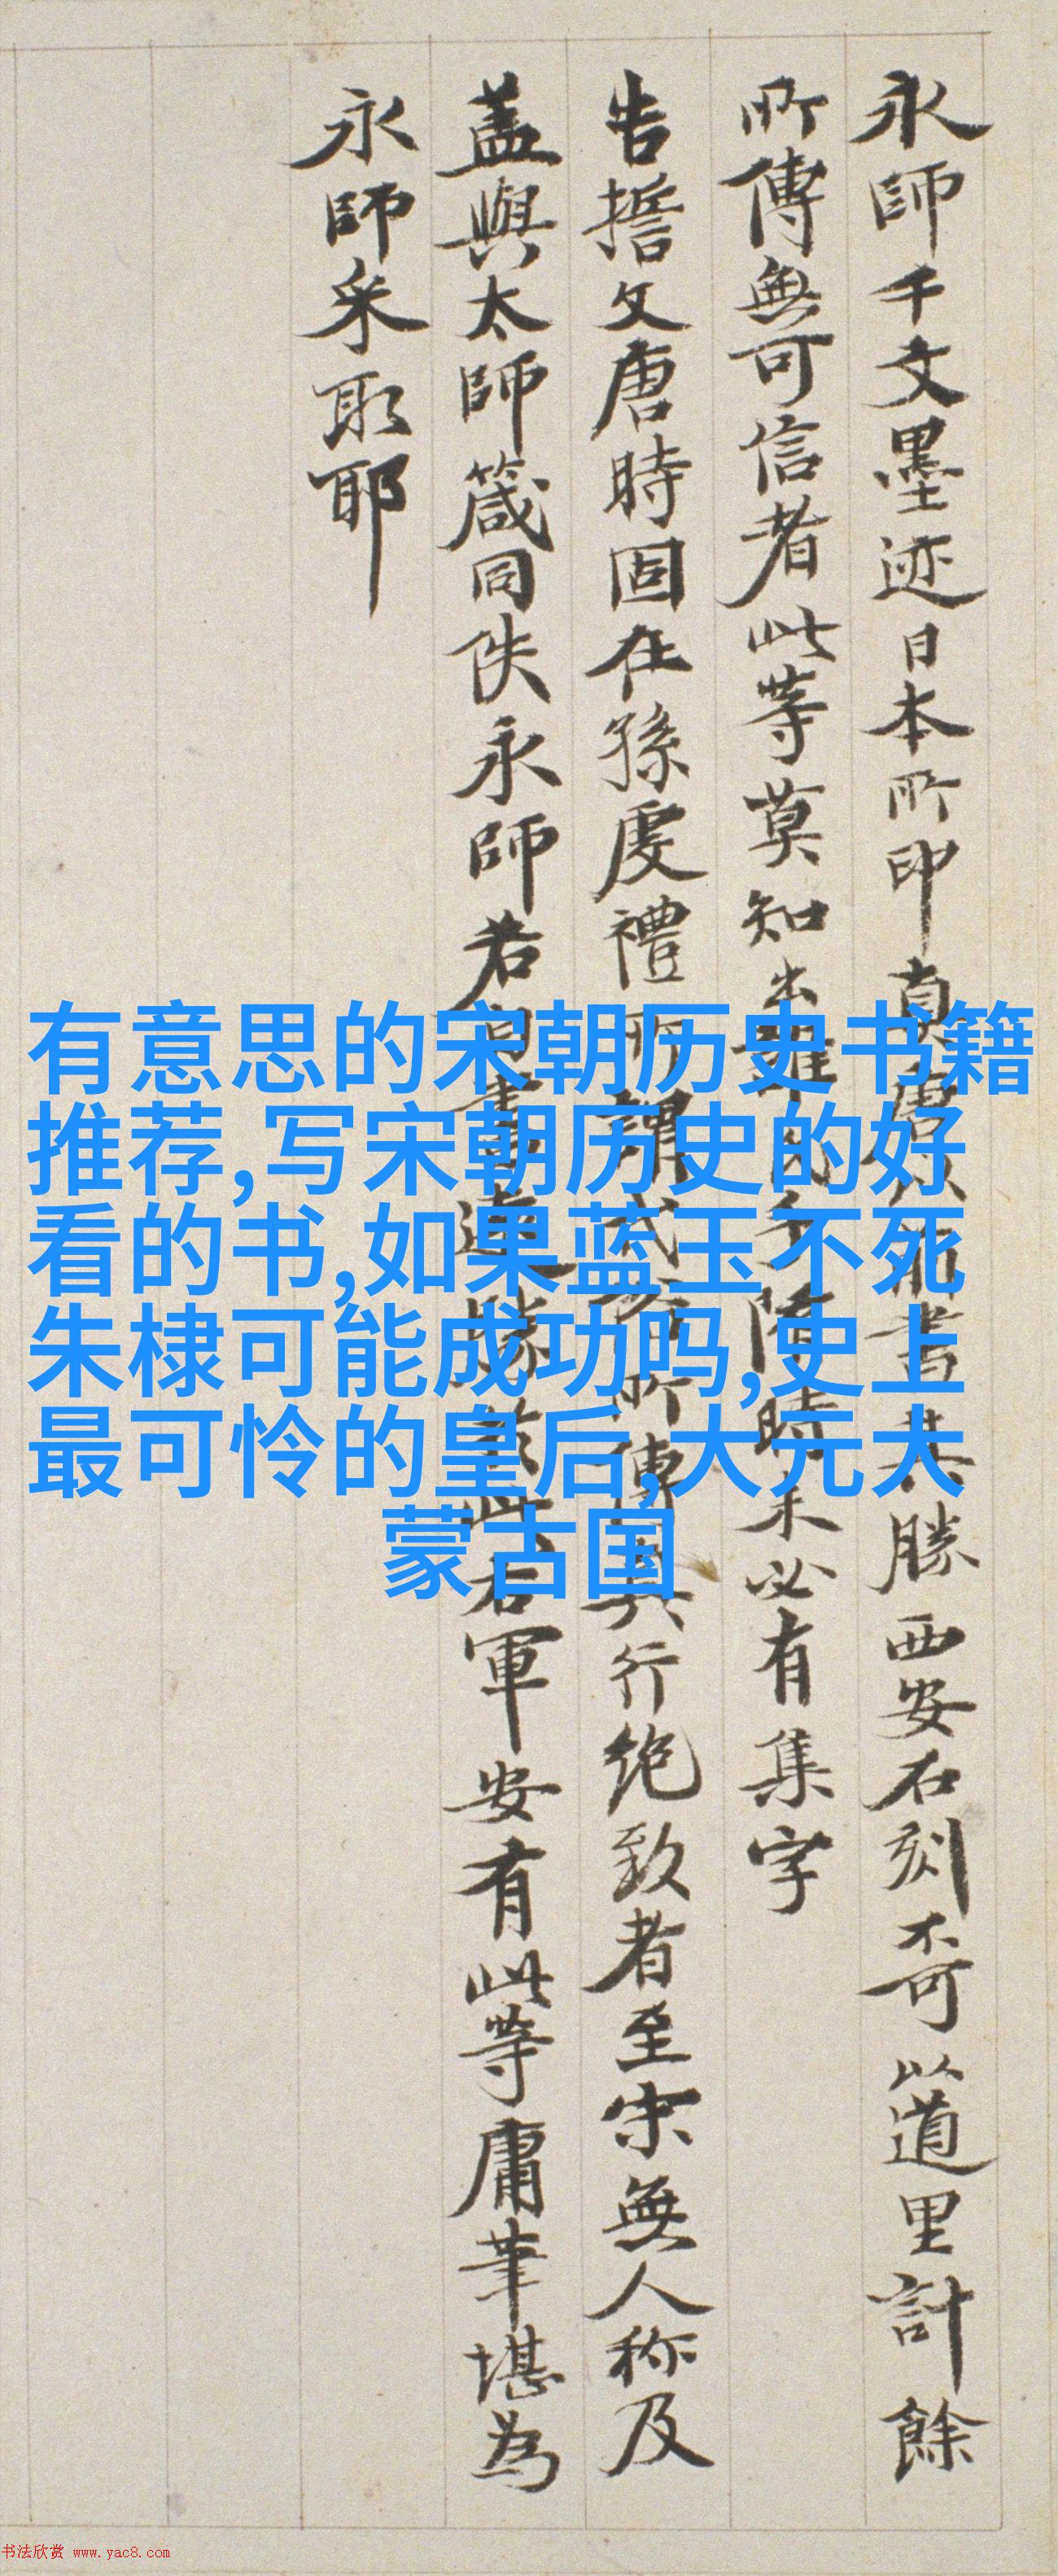 永師千文墨迹日本所印真唐
勝西安石刻奇以道里計餘
所傳無可信者此等莫知出
時未必有集字
告誓文唐時固在孫虔禮所謂
行绝致者至宋無人称及
蓋與太師箴同佚永師若
右軍安有此等庸筆堪為
永師采取耶
有意思的宋朝历史书籍
推荐,写宋朝历史的好
看的书,如果蓝玉不死
朱棣可能成功吗,史上
最可怜的皇后,大元大
蒙古国
书法欣赏 www.yac8.com